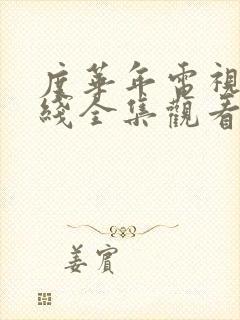 度華年電視
綫全集觀看
姜賓